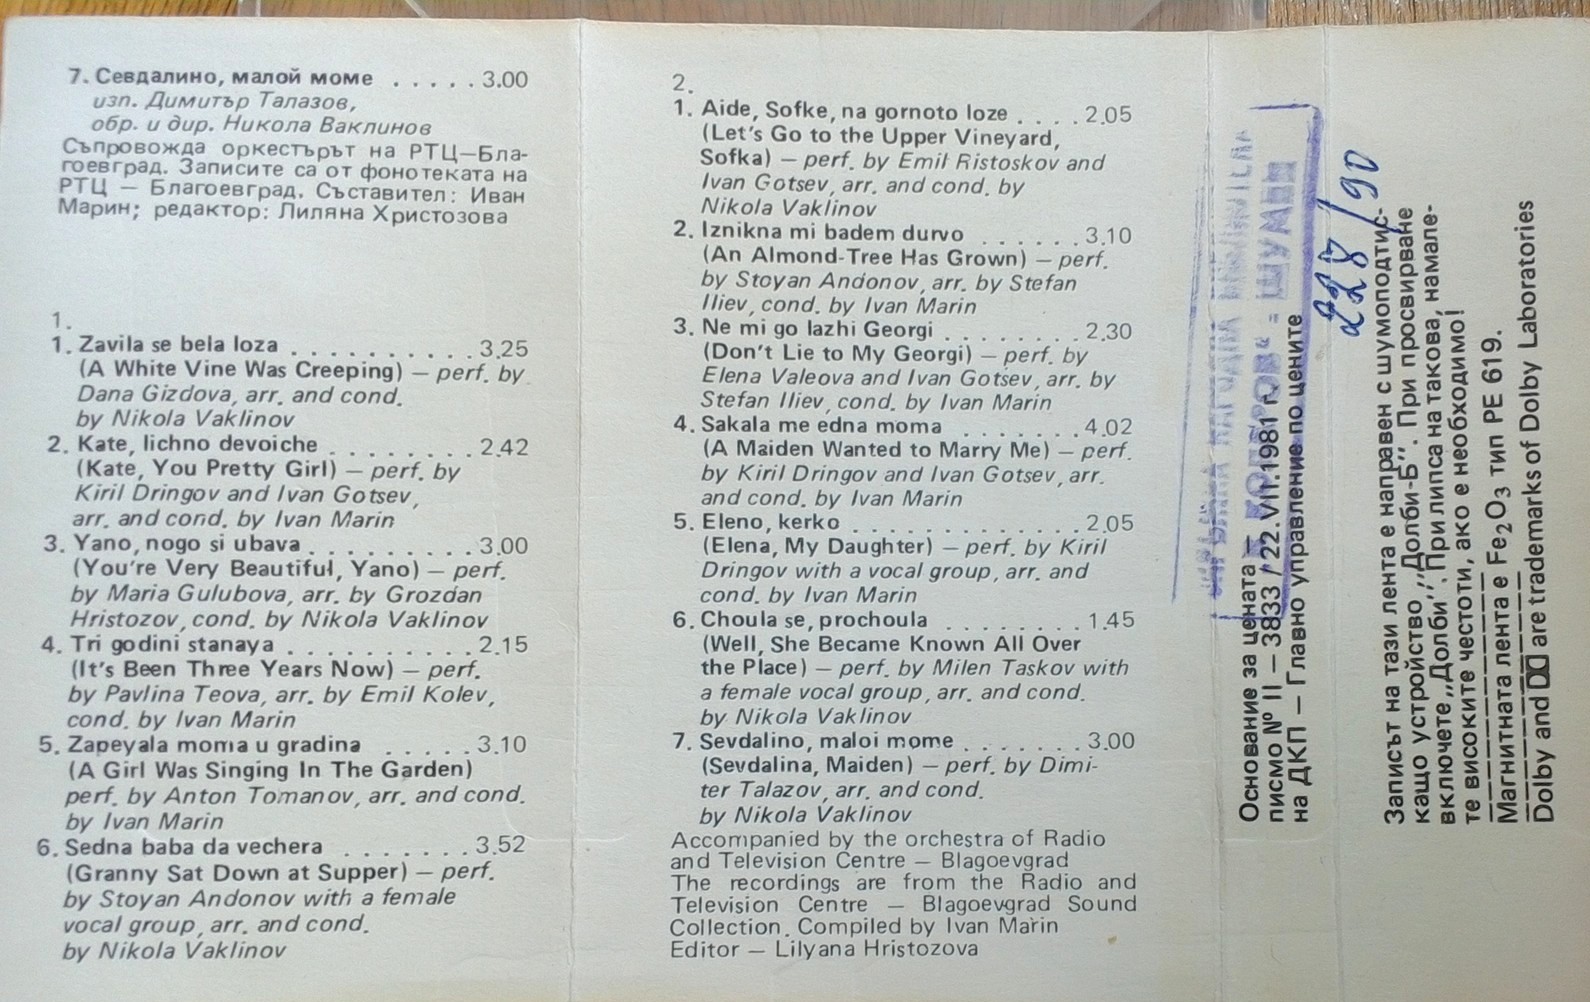 7. Севдалино, малой моме . . . . . 3.00
изп. Димитър Талазов,
обр. и дир. Никола Ваклинов
Съпровожда оркестърът на РТЦ—Бла-
гоевград. Записите са от фонотеката на
РТЦ — Благоевград. Съставител: Иван
Марин; редактор: Лиляна Христозова
1.
1. Zavila se bela loza . . . . . . . . . . 3.25
(A White Vine Was Creeping) — perf. by
Dana Gizdova, arr. and cond.
by Nikola Vaklinov
2. Kate, lichno devoiche . . . . . . . . 2.42
(Kate, You Pretty Girl) — perf. by
Kiril Dringov and Ivan Gotsev,
arr. and cond. by Ivan Marin
3. Yano, nogo si ubava . . . . . . . . . 3.00
(You're Very Beautiful, Yano) — perf.
by Maria Gulubova, arr. by Grozdan
Hristozov, cond. by Nikola Vaklinov
4. Tri godini stanaya . . . . . . . . . . 2.15
(It's Been Three Years Now) — perf.
by Pavlina Teova, arr. by Emil Kolev,
cond. by Ivan Marin
5. Zapeyala moma u gradina . . . . . 3.10
(A Girl Was Singing In The Garden)
perf. by Anton Tomanov, arr. and cond.
by Ivan Marin
6. Sedna baba da vechera . . . . . . . 3.52
(Granny Sat Down at Supper) — perf.
by Stoyan Andonov with a female
vocal group, arr. and cond.
by Nikola Vaklinov
2.
1. Aide, Sofke, na gornoto loze . . . . 2.05
(Let's Go to the Upper Vineyard,
Sofka) — perf. by Emil Ristoskov and
Ivan Gotsev, arr. and cond. by
Nikola Vaklinov
2. Iznikna mi badem durvo . . . . . . 3.10
(An Almond-Tree Has Grown) — perf.
by Stoyan Andonov, arr. by Stefan
Iliev, cond. by Ivan Marin
3. Ne mi go lazhi Georgi . . . . . . . . 2.30
(Don't Lie to My Georgi) — perf. by
Elena Valeova and Ivan Gotsev, arr. by
Stefan Iliev, cond. by Ivan Marin
4. Sakala me edna moma . . . . . . . 4.02
(A Maiden Wanted to Marry Me) — perf.
by Kiril Dringov and Ivan Gotsev, arr.
and cond. by Ivan Marin
5. Eleno, kerko . . . . . . . . . . . . . 2.05
(Elena, My Daughter) — perf. by Kiril
Dringov with a vocal group, arr. and
cond. by Ivan Marin
6. Choula se, prochoula . . . . . . . . 1.45
(Well, She Became Known All Over
the Place) — perf. by Milen Taskov with
a female vocal group, arr. and cond.
by Nikola Vaklinov
7. Sevdalino, maloi mome . . . . . . . 3.00
(Sevdalina, Maiden) — perf. by Dimi-
ter Talazov, arr. and cond.
by Nikola Vaklinov
Accompanied by the orchestra of Radio
and Television Centre — Blagoevgrad
The recordings are from the Radio and
Television Centre — Blagoevgrad Sound
Collection. Compiled by Ivan Marin
Editor — Lilyana Hristozova
Основание за цената —
писмо № II — 3833 / 22.VII.1981 г.
на ДКП — Главно управление по цените
ШУМЕН
228/90
Записът на тази лента е направен с шумоподтис-
кащо устройство „Долби-Б". При просвирване
включете „Долби". При липса на такова, намале-
те високите честоти, ако е необходимо!
Магнитната лента е Fe2O3 тип PE 619.
Dolby and are trademarks of Dolby Laboratories